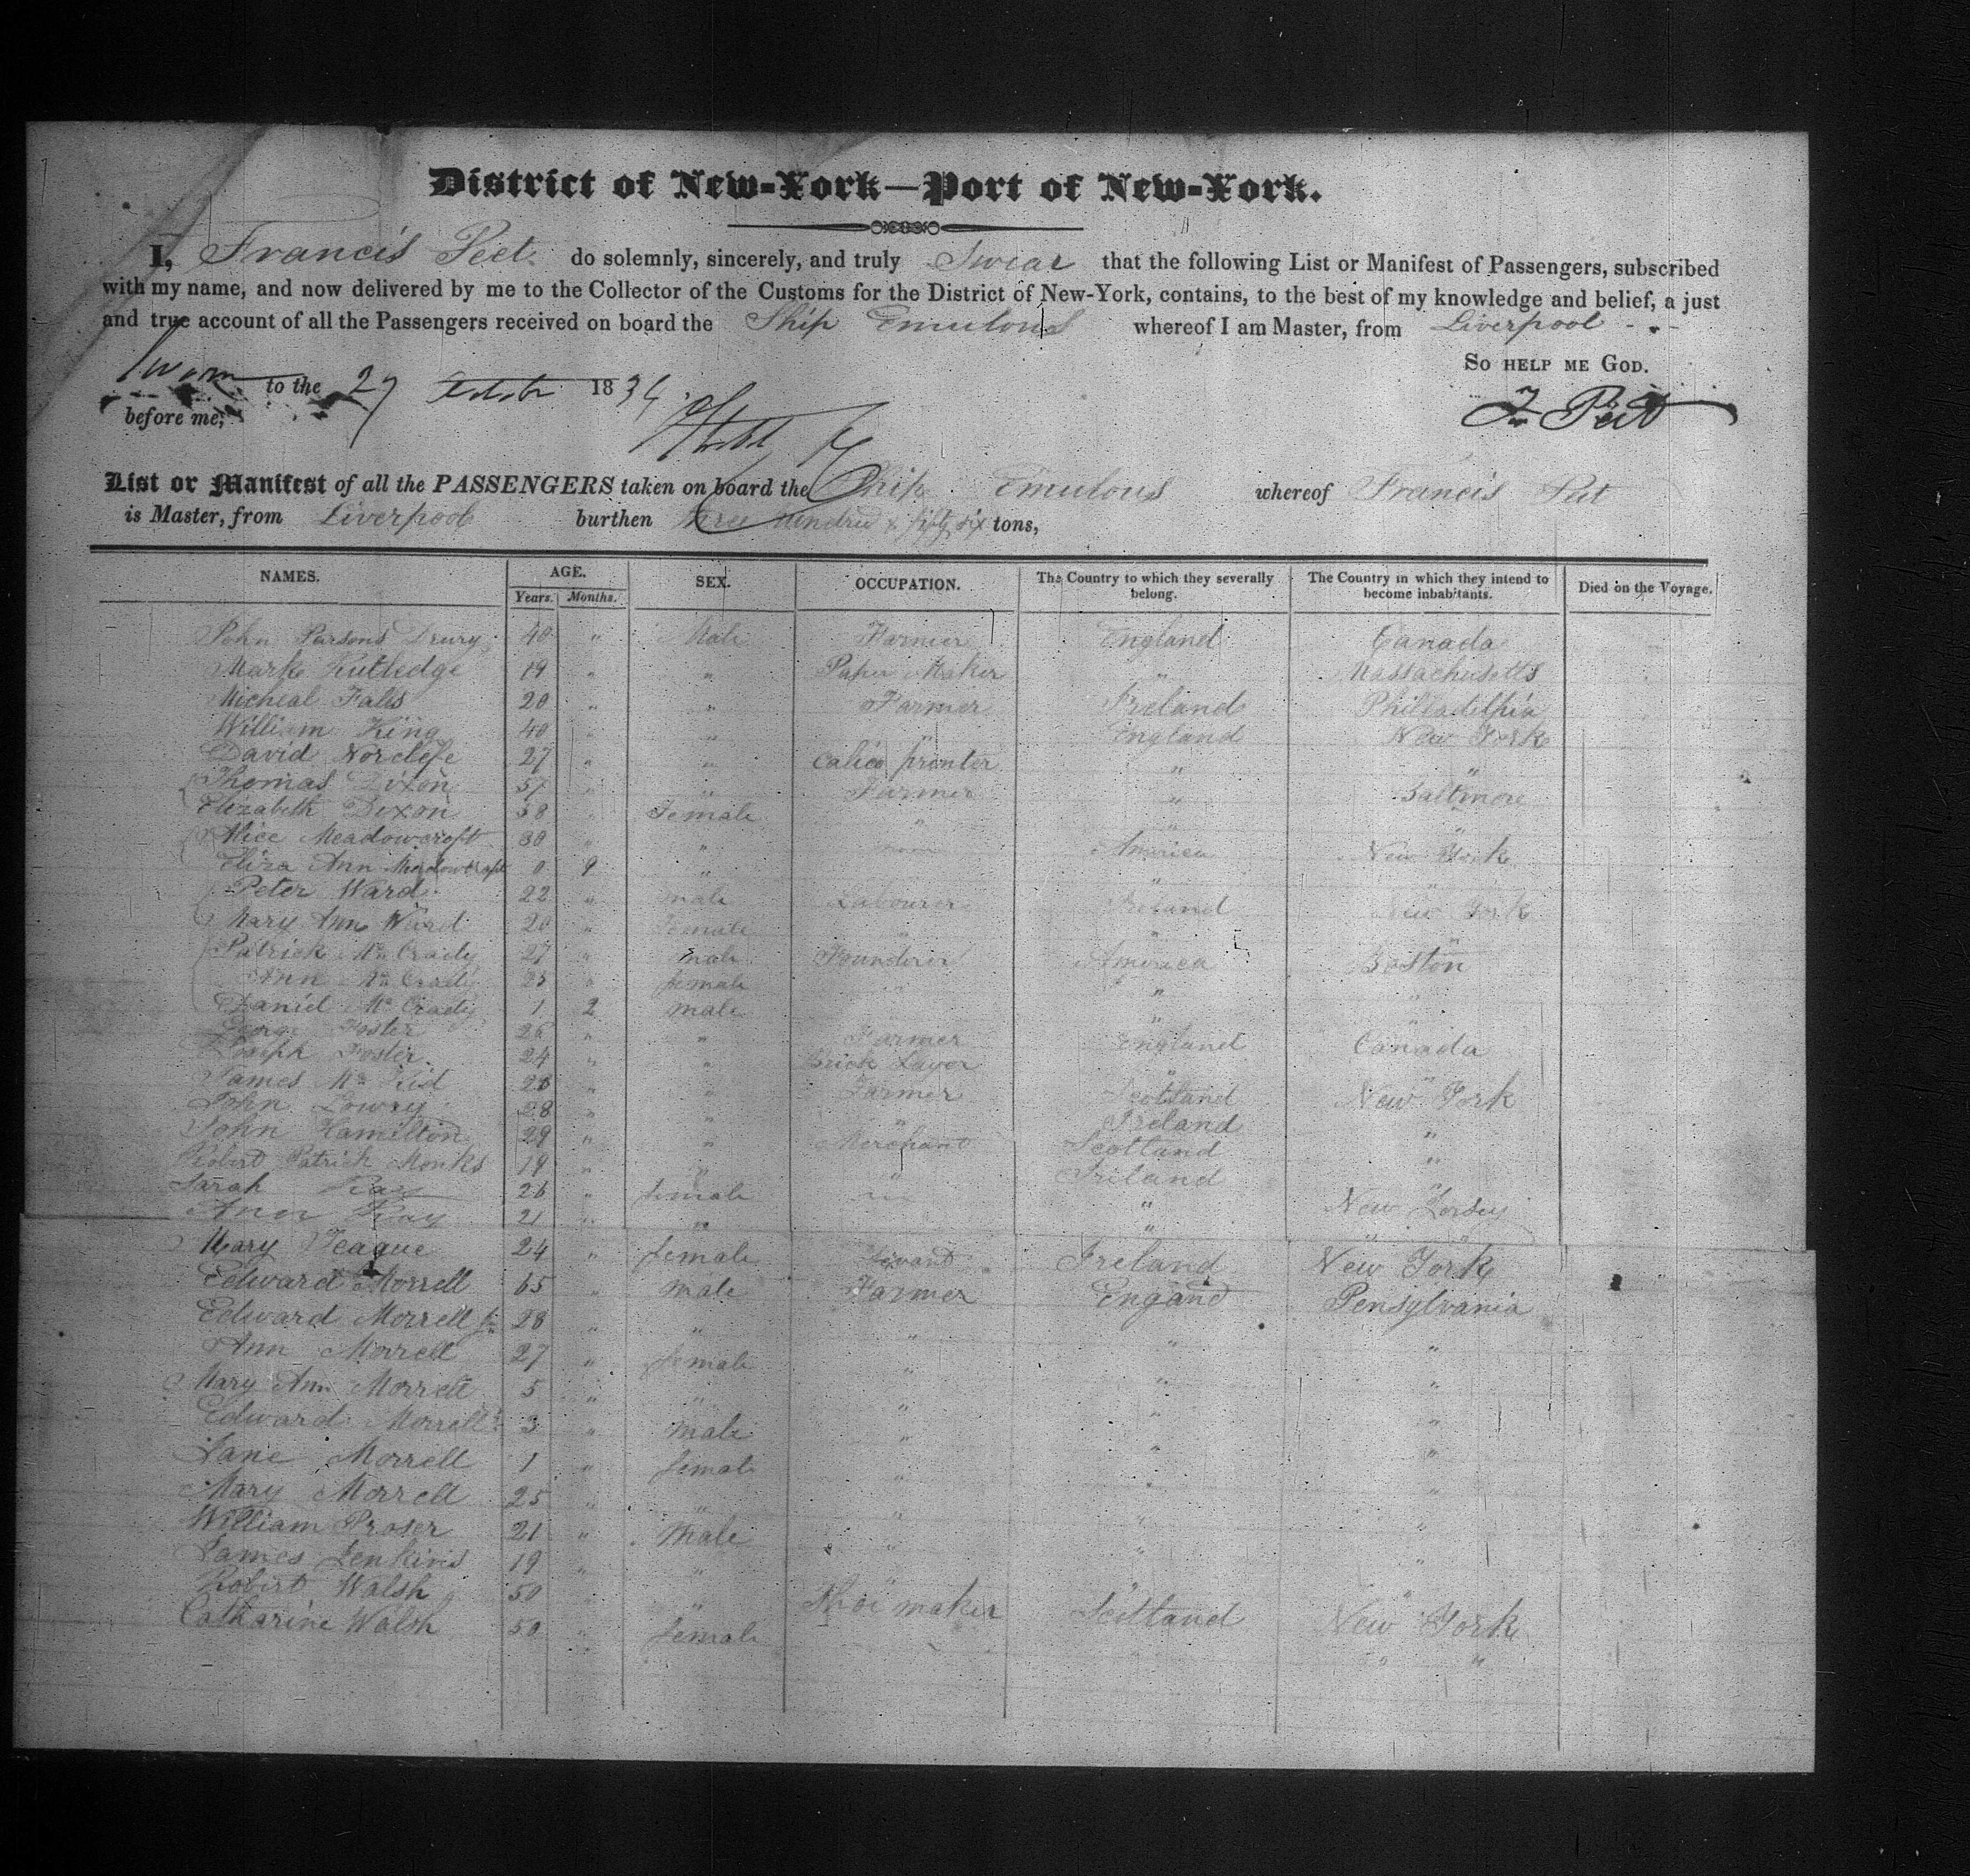 District of New-York—Port of New-York.
I, Francis Peet do solemnly, sincerely, and truly Swear that the following List or Manifest of Passengers, subscribed
with my name, and now delivered by me to the Collector of the Customs for the District of New-York, contains, to the best of my knowledge and belief, a just
and true account of all the Passengers received on board the Ship Emulous whereof I am Master, from Liverpool
So help me God.
Sworn to the 27 18
before me,
F Peet
List or Manifest of all the PASSENGERS taken on board the Ship Emulous whereof Francis Peet
is Master, from Liverpool burthen three hundred & fifty six tons,
NAMES. AGE. SEX. OCCUPATION. The Country to which they severally belong. The Country in which they intend to become inhabitants. Died on the Voyage.
Years. Months.
John Parsons Drury 40 " Male Farmer England Canada
Mark Rutledge 19 " " Paper Maker " Massachusetts
Micheal Falls 20 " " Farmer Ireland Philladelphia
William King 40 " " " England New York
David Norclefe 27 " " Calico printer " "
Thomas Dixon 57 " " Farmer " Baltimore
Elizabeth Dixon 58 " Female " " "
Alice Meadowcroft 30 " " America New York
Eliza Ann Meadowcroft 0 9 " " "
Peter Ward 22 " male Labourer Ireland New York
Mary Ann Ward 20 " Female " " "
Patrick Mc Crady 27 " male Founderer America Boston
Ann Mc Crady 25 " female " " "
Daniel Mc Crady 1 2 male " "
George Foster 26 " " Farmer England Canada
Joseph Foster 24 " " Brick Layer " "
James Mc Kid 28 " " Farmer Scotland New York
John Lowry 28 " " " Ireland "
John Hamilton 29 " " Merchant Scotland "
Robert Patrick Monks 19 " " " Ireland "
Sarah Ray 26 " female " New Jersey
Ann Ray 21 " " " "
Mary Teague 24 " female Ireland New York
Edward Morrell 65 " male Farmer Engand Pensylvania
Edward Morrell Jr 28 " " " " "
Ann Morrell 27 " female " " "
Mary Ann Morrell 5 " " " " "
Edward Morrell 3 " male " " "
Jane Morrell 1 " female " " "
Mary Morrell 25 " " " " "
William Proser 21 " Male " " "
James Jenkins 19 " " " " "
Robert Walsh 50 " " Shoe maker Scotland New York
Catharine Walsh 50 " female " " "